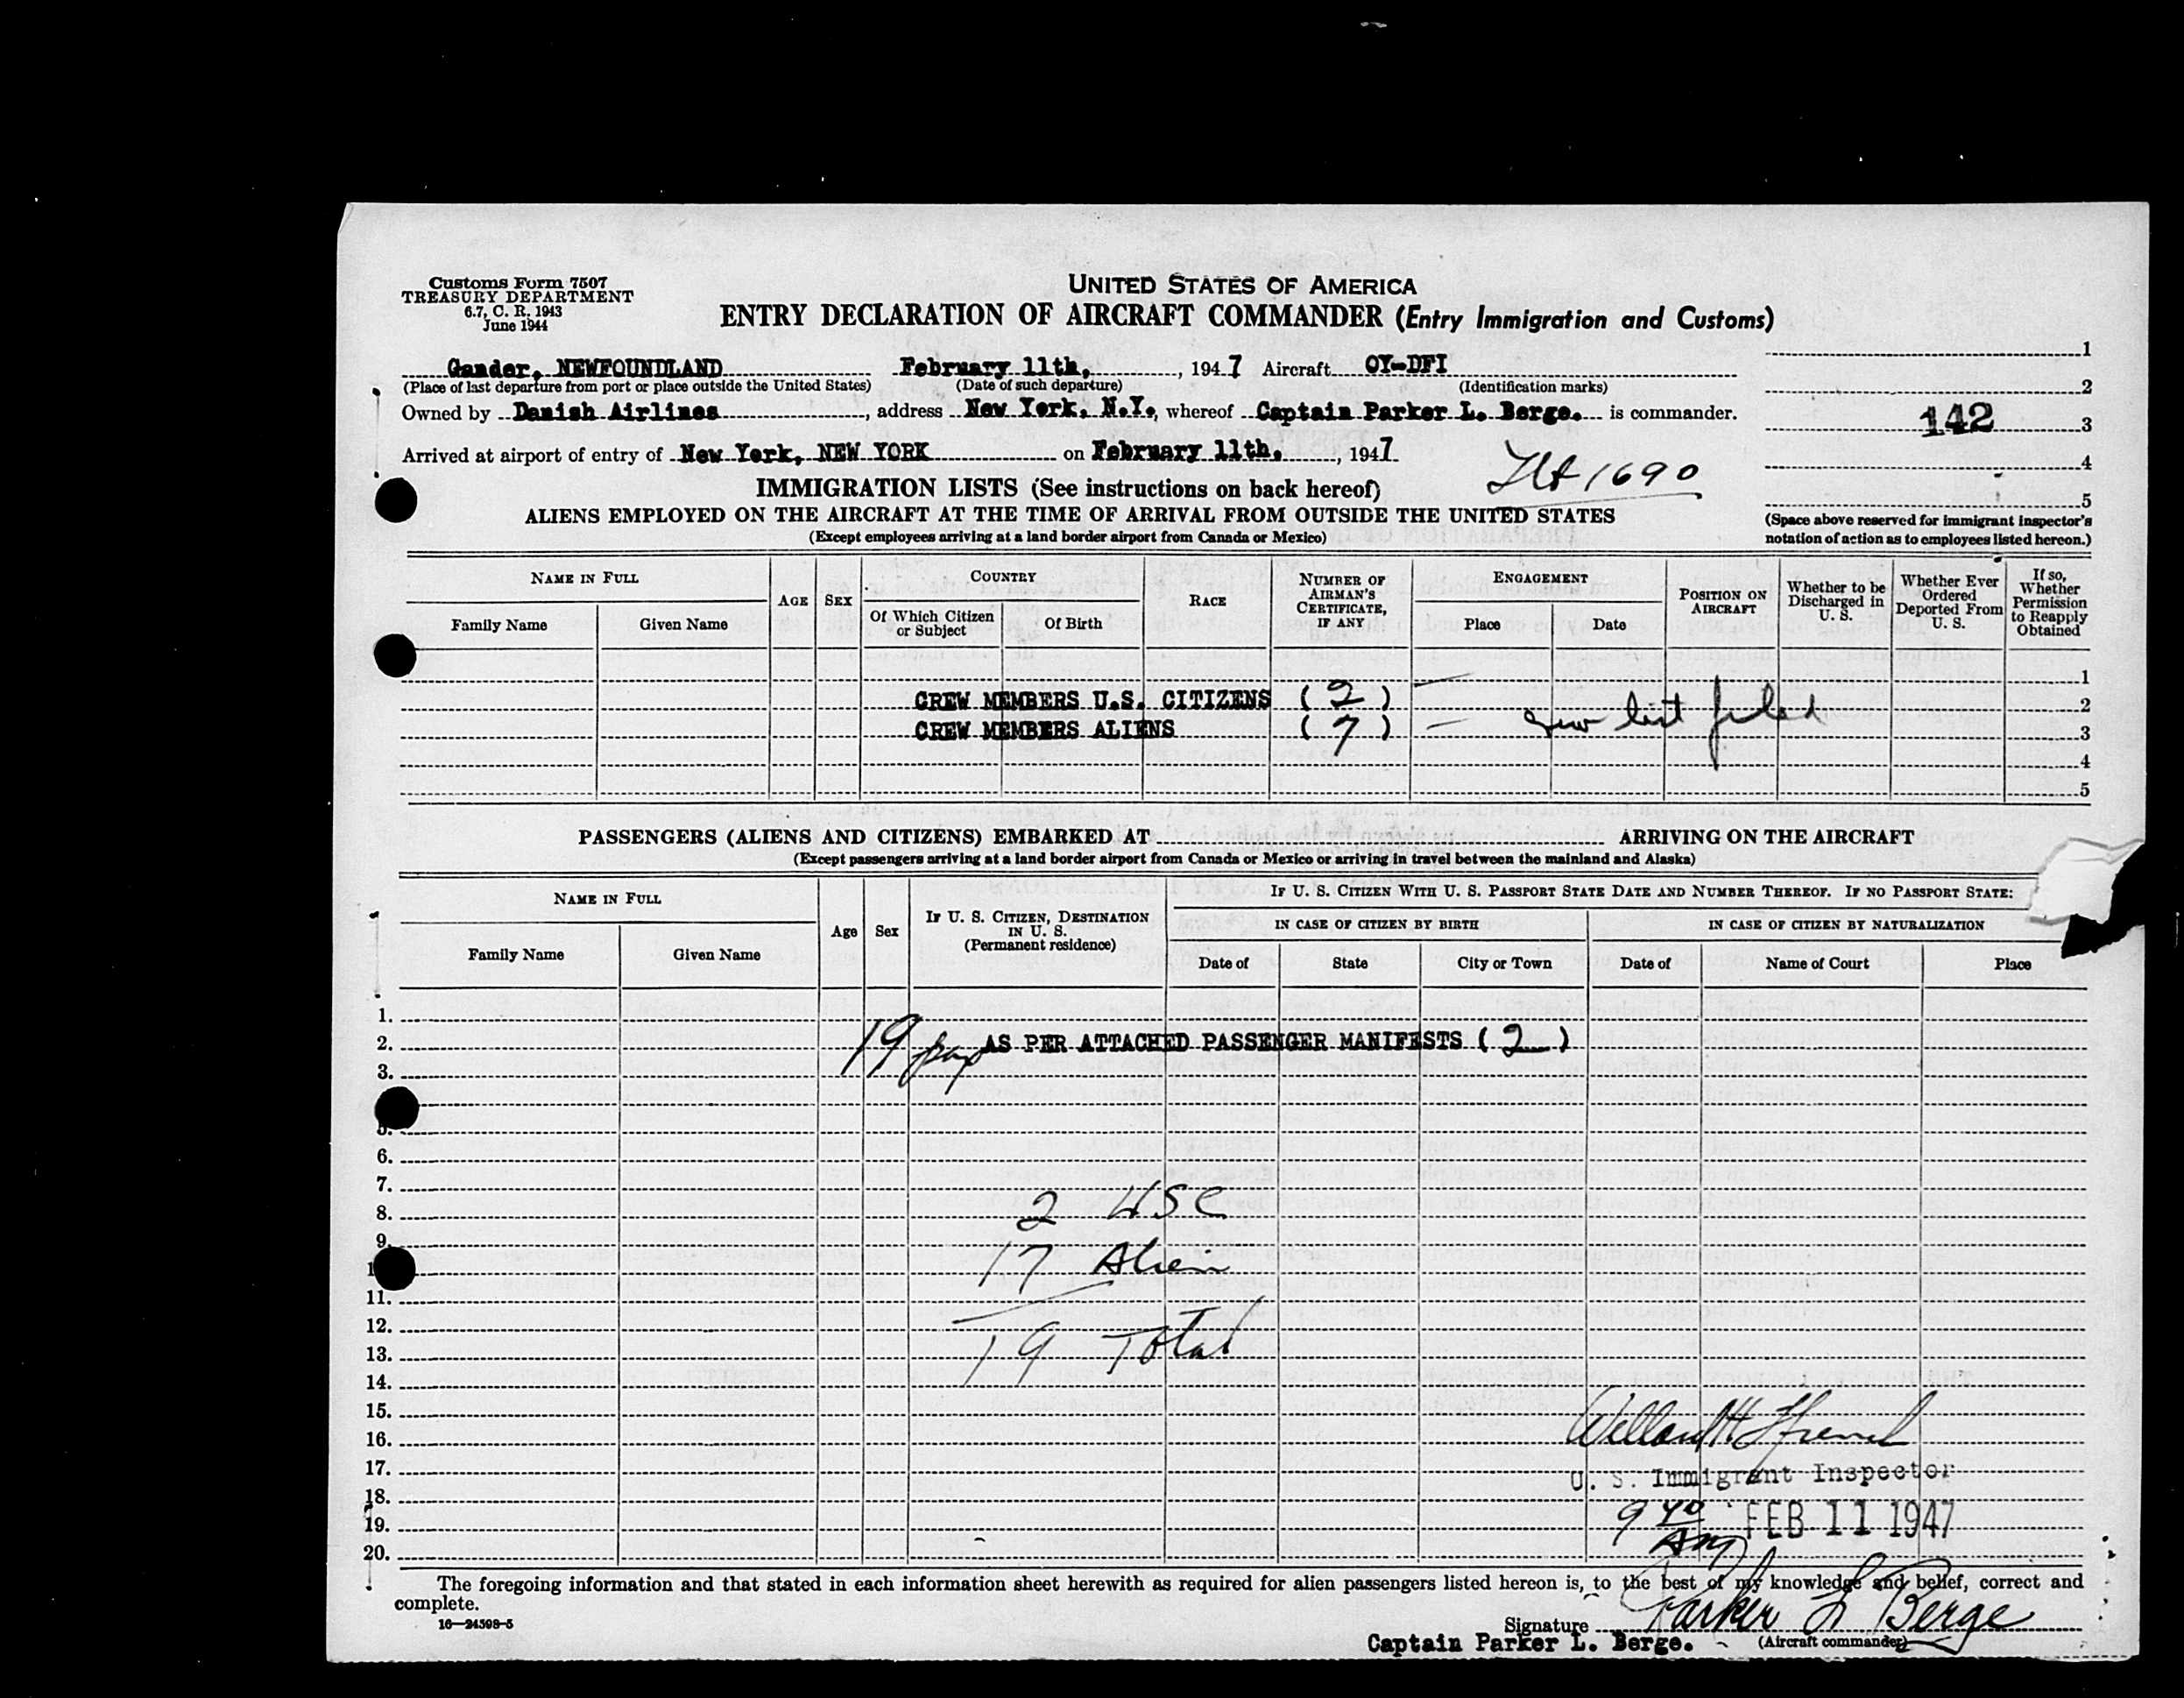 Customs Form 7507
TREASURY DEPARTMENT
6.7, C. R. 1943
June 1944
UNITED STATES OF AMERICA
ENTRY DECLARATION OF AIRCRAFT COMMANDER (Entry Immigration and Customs)
Gander, NEWFOUNDLAND February 11th, , 1947 Aircraft OY-DFI
(Place of last departure from port or place outside the United States) (Date of such departure) (Identification marks)
Owned by Danish Airlines , address New York, N.Y., whereof Captain Parker L. Berge. is commander.
Arrived at airport of entry of New York, NEW YORK on February 11th, , 1947
1
2
142 3
4
5
(Space above reserved for immigrant inspector's
notation of action as to employees listed hereon.)
1690
IMMIGRATION LISTS (See instructions on back hereof)
ALIENS EMPLOYED ON THE AIRCRAFT AT THE TIME OF ARRIVAL FROM OUTSIDE THE UNITED STATES
(Except employees arriving at a land border airport from Canada or Mexico)
NAME IN FULL
Family Name
Given Name
AGE
SEX
COUNTRY
Of Which Citizen or Subject
Of Birth
RACE
NUMBER OF AIRMAN'S CERTIFICATE, IF ANY
ENGAGEMENT
Place
Date
POSITION ON AIRCRAFT
Whether to be Discharged in U. S.
Whether Ever Ordered Deported From U. S.
If so, Whether Permission to Reapply Obtained
1
CREW MEMBERS U.S. CITIZENS (2) 2
CREW MEMBERS ALIENS (7) list filed 3
4
5
PASSENGERS (ALIENS AND CITIZENS) EMBARKED AT ARRIVING ON THE AIRCRAFT
(Except passengers arriving at a land border airport from Canada or Mexico or arriving in travel between the mainland and Alaska)
NAME IN FULL
Family Name
Given Name
Age
Sex
IF U. S. CITIZEN, DESTINATION IN U. S.
(Permanent residence)
IF U. S. CITIZEN WITH U. S. PASSPORT STATE DATE AND NUMBER THEREOF. IF NO PASSPORT STATE:
IN CASE OF CITIZEN BY BIRTH
IN CASE OF CITIZEN BY NATURALIZATION
Date of
State
City or Town
Date of
Name of Court
Place
1.
2. 19 pax AS PER ATTACHED PASSENGER MANIFESTS (2)
3.
5.
6.
7.
8. 2 USC
9.
17 Alien
11.
12.
13. 19 Total
14.
15.
16.
17. U. S. Immigrant Inspector
18.
19. 9 40 AM FEB 11 1947
20.
The foregoing information and that stated in each information sheet herewith as required for alien passengers listed hereon is, to the best of my knowledge and belief, correct and
complete.
16—24598-5
Signature Parker L Berge
Captain Parker L. Berge. (Aircraft commander)